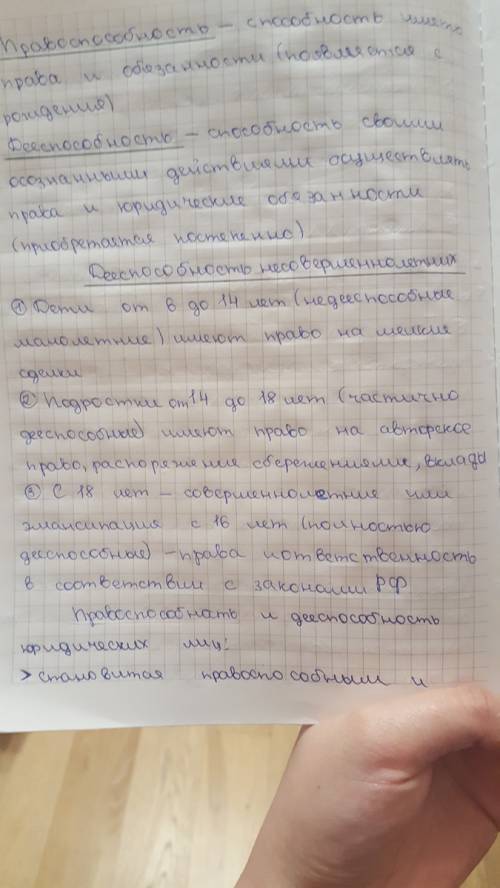 Правоспособность – способность иметь
права и обязанности (появляется с
рождения)
Дееспособность – способность своими
осознанными действиями осуществлять
права и юридические обязанности
(приобретается постепенно)
Дееспособность несовершеннолетних
① Дети от 6 до 14 лет (недееспособные
малолетние) имеют право на мелкие
сделки
② Подростки от 14 до 18 лет (частично
дееспособные) имеют право на авторское
право, распоряжение сбережениями, вклады
③ С 18 лет – совершеннолетние или
эмансипация с 16 лет (полностью
дееспособные) – права и ответственность
в соответствии с законами РФ
Правоспособнать и дееспособность
юридических лиц:
> становится правоспособным и